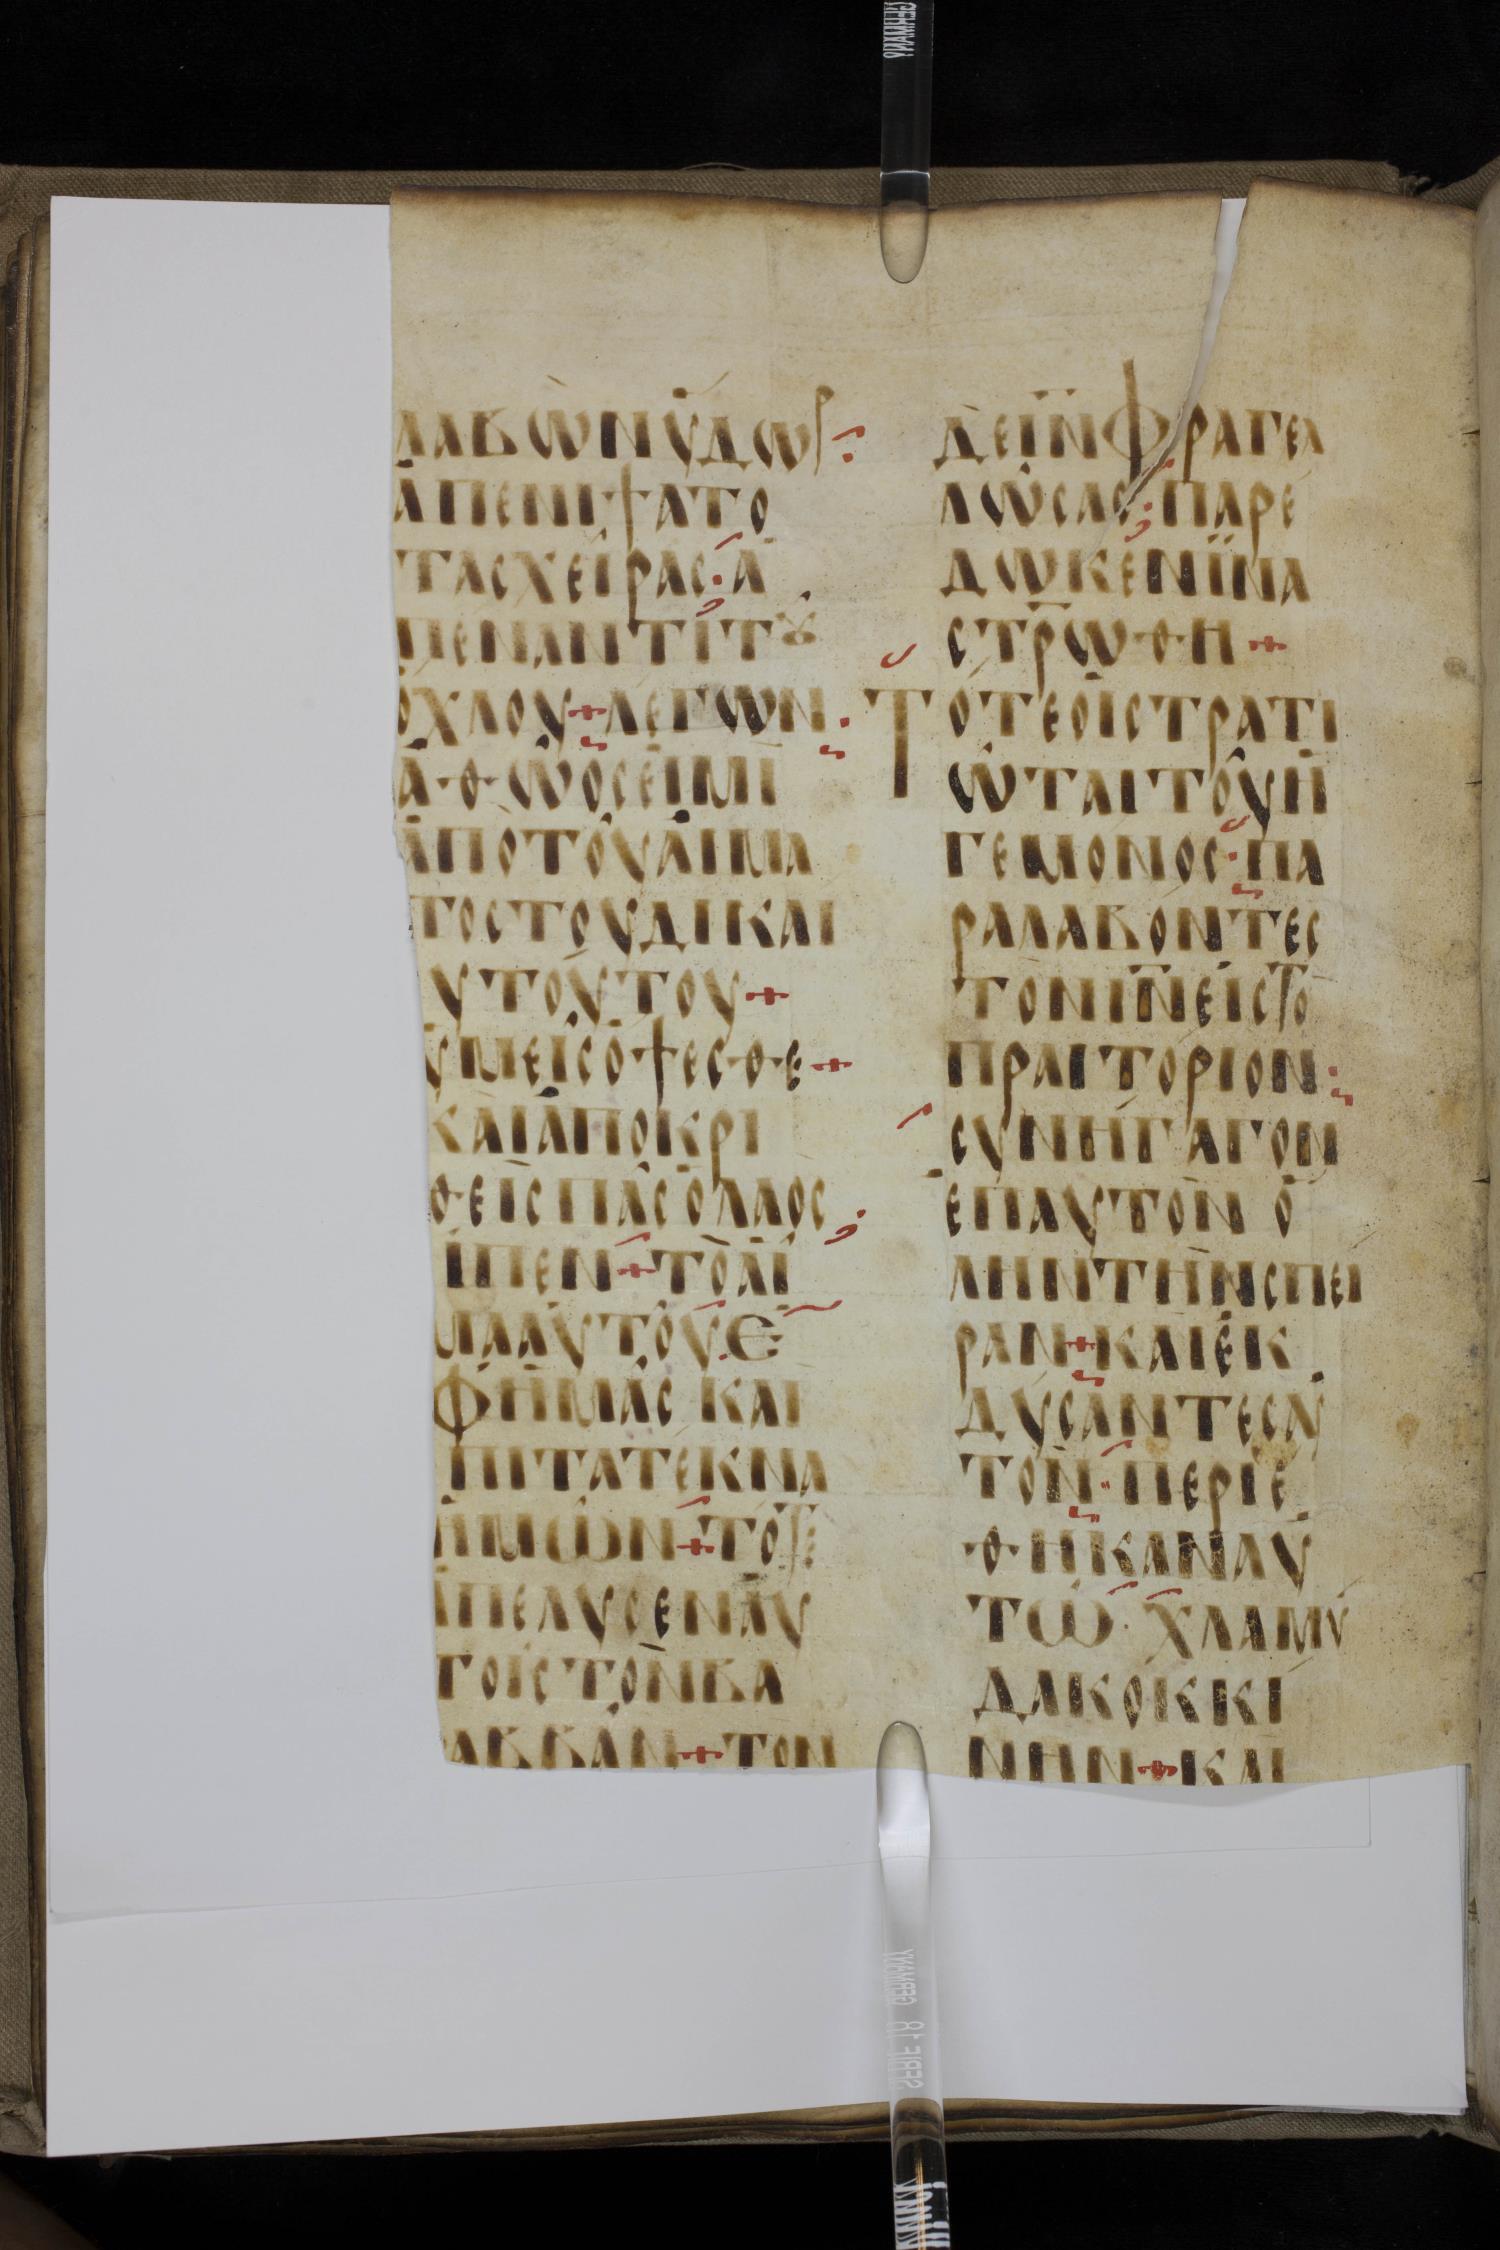 ΛΑΒῺΝΫΔΩΡ
ἈΠΕΝΙΨΑΤΟ
ΤΑΣΧΕῙΡΑΣ·Ἀ
ΠΕΝΑΝΤΙΤȢ͂
ὌΧΛΟΥ+ΛΕΓΩΝ
ἈΘΩΟΣΕΙΜΙ
ἈΠΟΤΟΥΑΙΜΑ
ΤΟΣΤΟΥΔΙΚΑΙ
ΥΤΟΥΤΟΥ+
ΥΜΕΙΣΟΨΕΣΘΕ+
ΚΑΙΑΠΟΚΡΙ
ΘΕΙΣΠΑΣΟΛΑΟΣ
ΙΠΕΝ+ΤΟΑΙ
ΜΑΑΥΤΟΥ·Ε
ΦΗΜΑΣΚΑΙ
ΠΙΤΑΤΕΚΝΑ
ΗΜΩΝ+ΤΟΤΕ
ΑΠΕΛΥΣΕΝΑΥ
ΤΟΙΣΤΟΝΒΑ
ΡΑΒΒΑΝ+ΤΟΝ
ΔΕΙ̅Ν̅ΦΡΑΓΕΛ
ΛΩΣΑΣ·ΠΑΡΕ
ΔΩΚΕΝΪΝΑ
ΣΤΡ̅ΩΘΗ+
ΤΟΤΕΟΙΣΤΡΑΤΙ
ΩΤΑΙΤΟΥΗ
ΓΕΜΟΝΟΣ·ΠΑ
ΡΑΛΑΒΟΝΤΕΣ
ΤΟΝΙ̅Ν̅ΕΙΣΤΟ
ΠΡΑΙΤΟΡΙΟΝ
ΣΥΝΗΓΑΓΟΝ
ΕΠΑΥΤΟΝΟ
ΛΗΝΤΗΝΣΠΕΙ
ΡΑΝ+ΚΑΙΕΚ
ΔΥΣΑΝΤΕΣΑΥ
ΤΟΝ·ΠΕΡΙΕ
ΘΗΚΑΝΑΥ
ΤΩ·ΧΛΑΜΥ
ΔΑΚΟΚΚΙ
ΝΗΝ+ΚΑΙ
GERMANY
SERIE 18